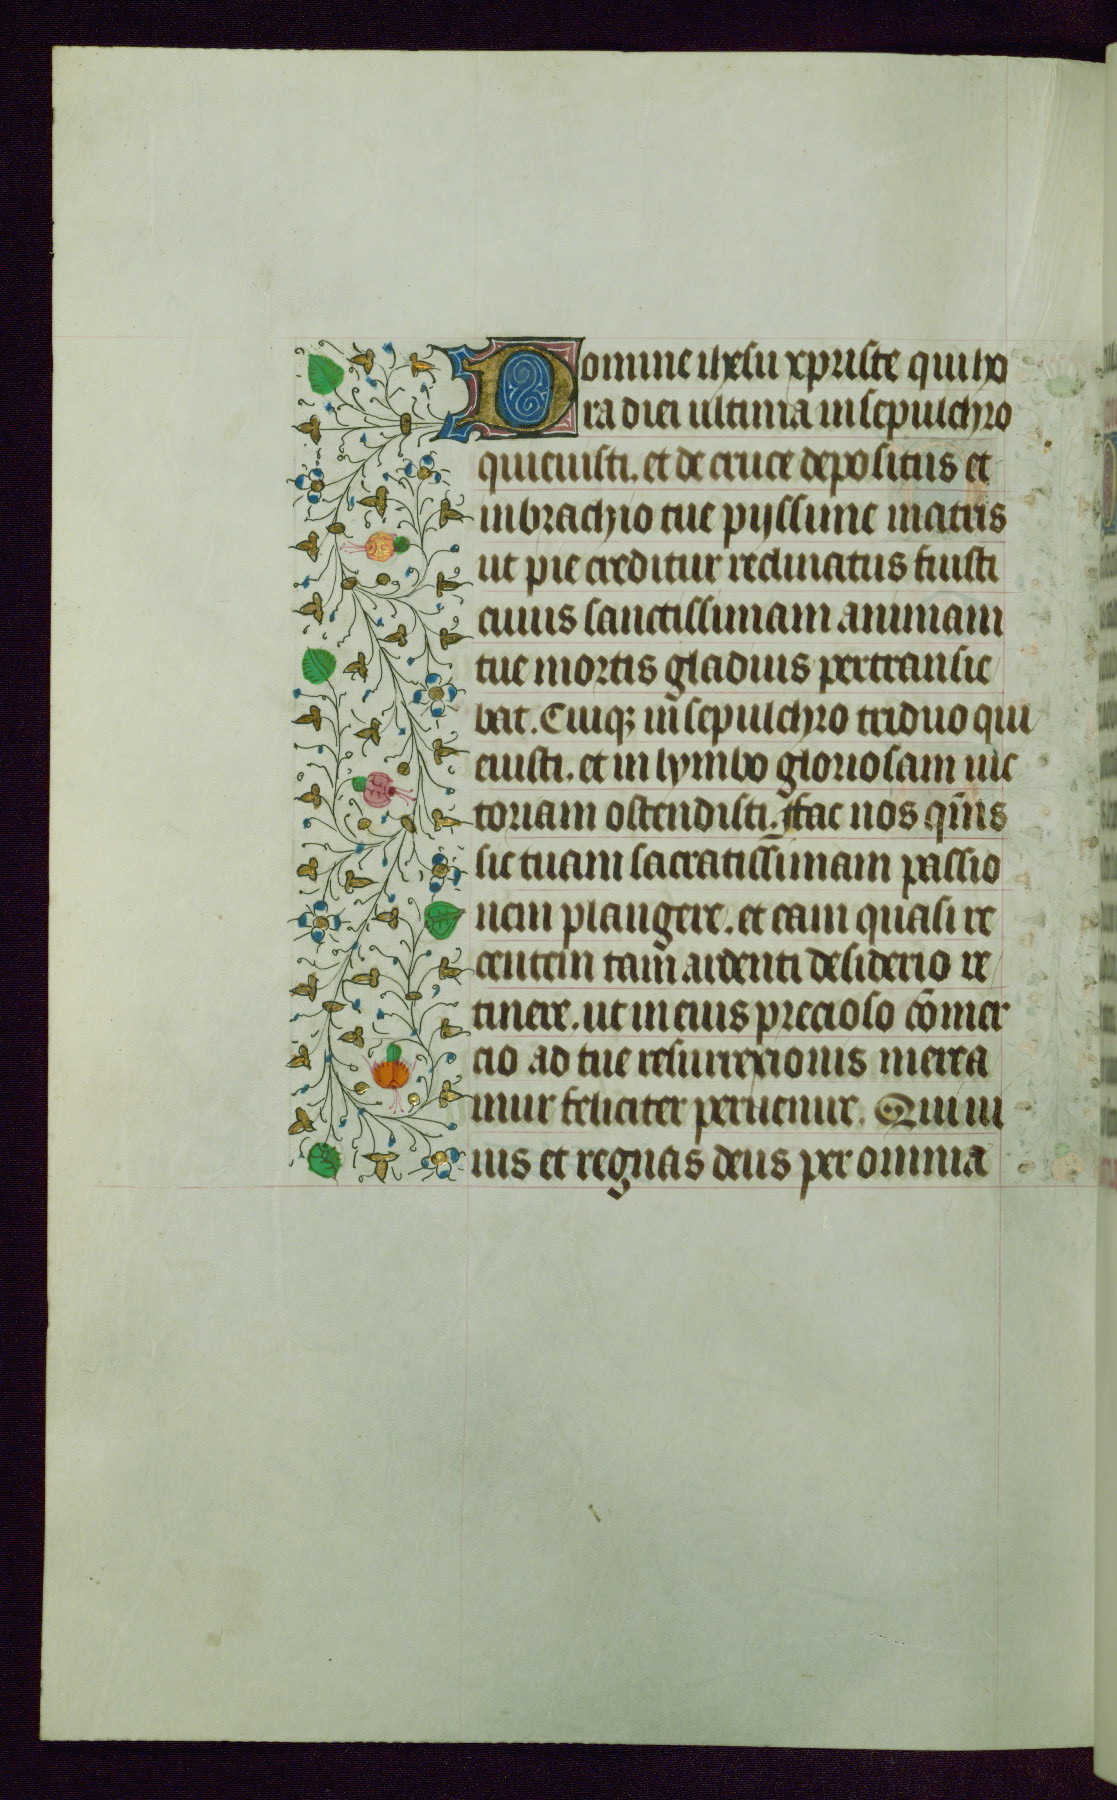 Domine ihesu xpriste qui ho
ra diei ultima in sepulchro
quieuisti. et de cruce depositus et
in brachio tue pijssime matris
ut pie creditur reclinatus fuisti
cuius sanctissimam animam
tue mortis gladius pertransie
bat. Cuiqz in sepulchro triduo qui
euisti. et in lymbo gloriosam uic
toriam ostendisti. ffac nos qm̄s
sic tuam sacratissimam passio
nem plangere. et eam quasi re
centem tam ardenti desiderio re
tinere. ut in eius precioso cōmer
cio ad tue resurrexionis merea
mur feliciter peruenire. Qui ui
uis et regnas deus per omnia